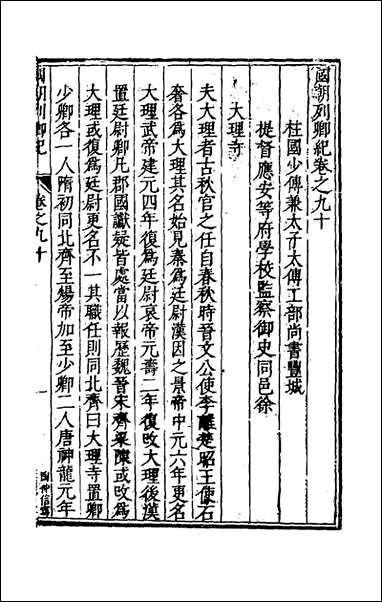 國朝列卿紀卷之九十
柱國少傅兼太子太傅工部尚書豐城
提督應安等府學校監察御史同邑徐
大理寺
夫大理者古秋官之任自春秋時晉文公使李離楚昭王使石
奢各為大理其名始見秦為廷尉漢因之景帝中元六年更名
大理武帝建元四年復為廷尉哀帝元壽二年復改大理後漢
置廷尉卿凡郡國讞疑皆處當以報歷魏晉宋齊梁陳或改為
大理或復為廷尉更名不一其職任則同北齊曰大理寺置卿
少卿各一人隋初同北齊至煬帝加至少卿二人唐神龍元年
國朝列卿紀
卷之九十
陶仲信寫